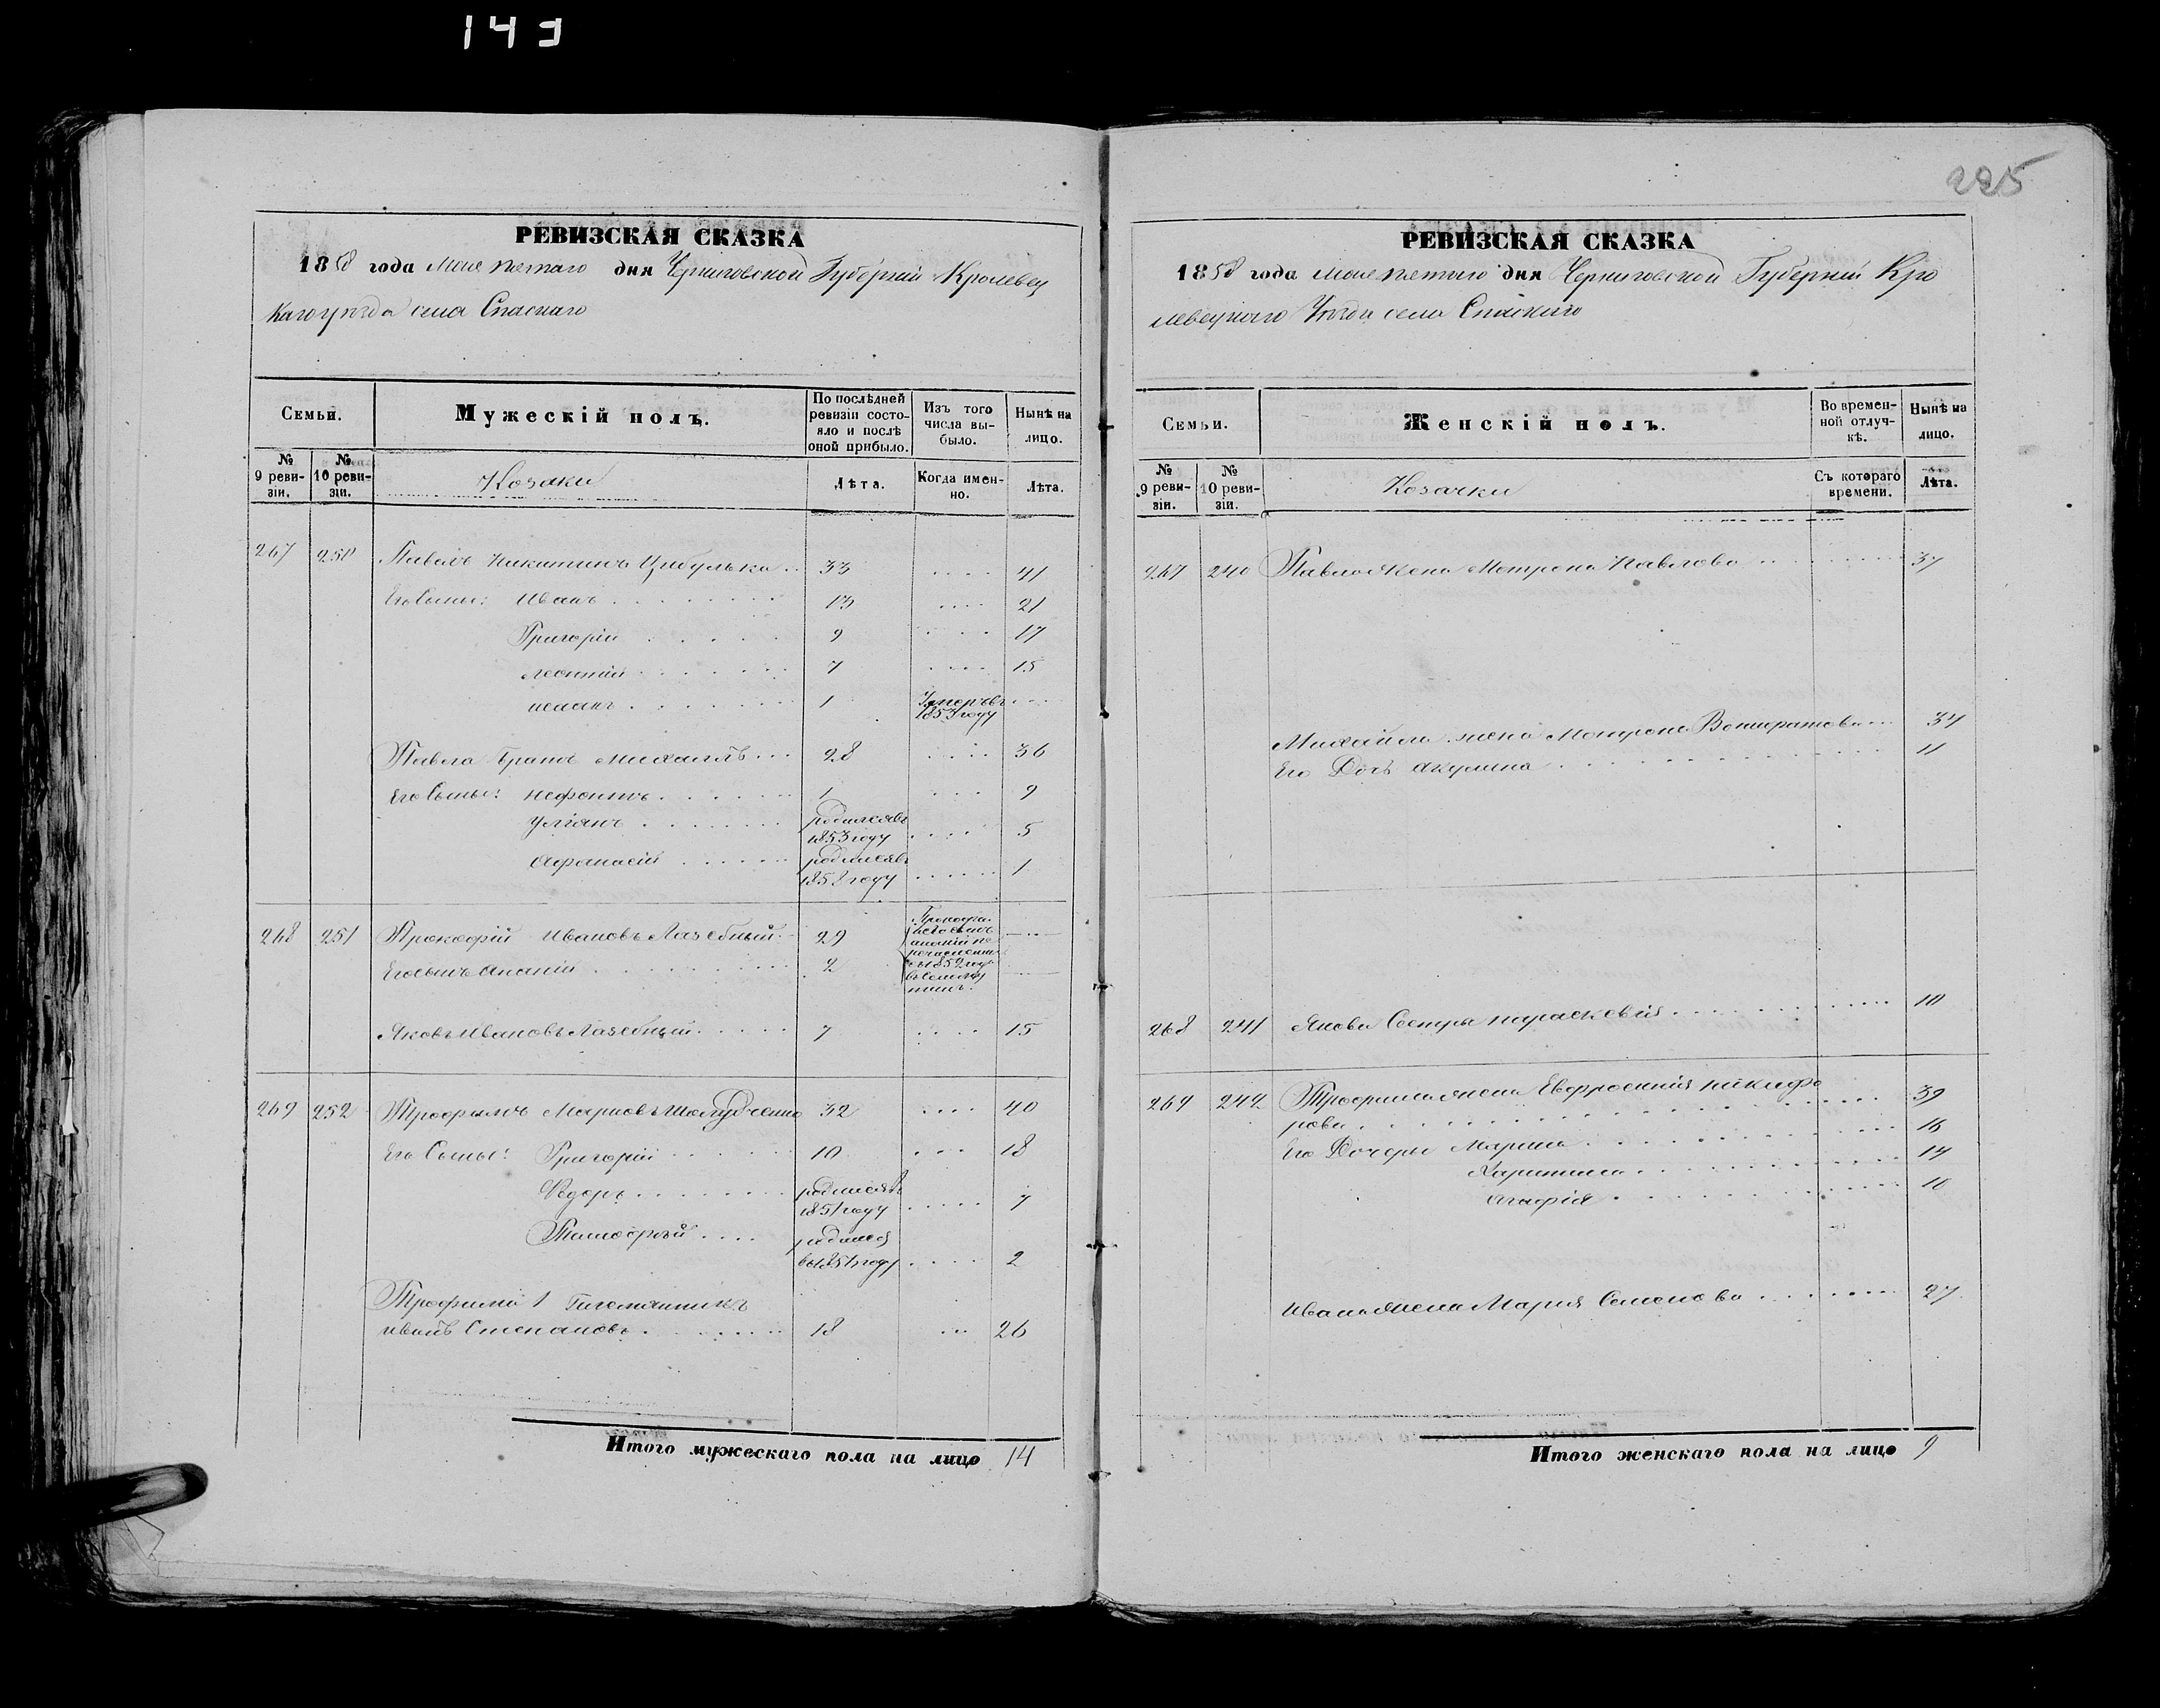 143
225
РЕВИЗСКАЯ СКАЗКА
1858 года Мая пятаго дня Черниговской Губерніи Кролевец
каго уезда села Спаскаго
Семьи.
Мужескій полъ.
По послѣдней ревизіи состояло и послѣ оной прибыло.
Изъ того числа выбыло.
Нынѣ на лицо.
№ 9 ревизіи.
№ 10 ревизіи.
Козаки
Лѣта.
Когда именно.
Лѣта.
267 250 Павелъ Никитинъ Цибулька 33 41
Его Сыны: Иванъ 13 21
Григорій 9 17
Леонтій 7 15
1 Умеръ въ 1853 году
Павла братъ Михаилъ 28 36
Его Сыны: 1 9
Уліанъ родился въ 1853 году 5
Афанасій родился въ 1858 году 1
268 251 Прокофій Ивановъ Лазебный 29
Его сынъ Ананій 2
Яковъ Ивановъ Лазебный 7 15
269 252 Трофимъ Марковъ 32 40
Его Сыны: Григорій 10 18
Федоръ родился въ 1851 году 7
Тимофей родился 2
Трофима 1 Племянникъ
Иванъ Степановъ 18 26
Итого мужескаго пола на лицо 14
РЕВИЗСКАЯ СКАЗКА
1858 года Мая пятаго дня Черниговской Губерніи Кро
левецкаго Уезда села Спаскаго
Семьи.
Женскій полъ.
Во временной отлучкѣ.
Нынѣ на лицо.
№ 9 ревизіи.
№ 10 ревизіи.
Козачки
Съ котораго времени.
Лѣта.
267 240 Павла Жена Мотрона Павлова 37
Михайла жена Мотрона 34
Его Дочь Акулина 11
268 241 Якова Сестра Параскевія 10
269 242 Трофима жена Евфросинія Никифо
рова 39
Его Дочери Марина 16
Харитина 14
Агафія 10
Ивана Жена Марія Семенова 27
Итого женскаго пола на лицо 9